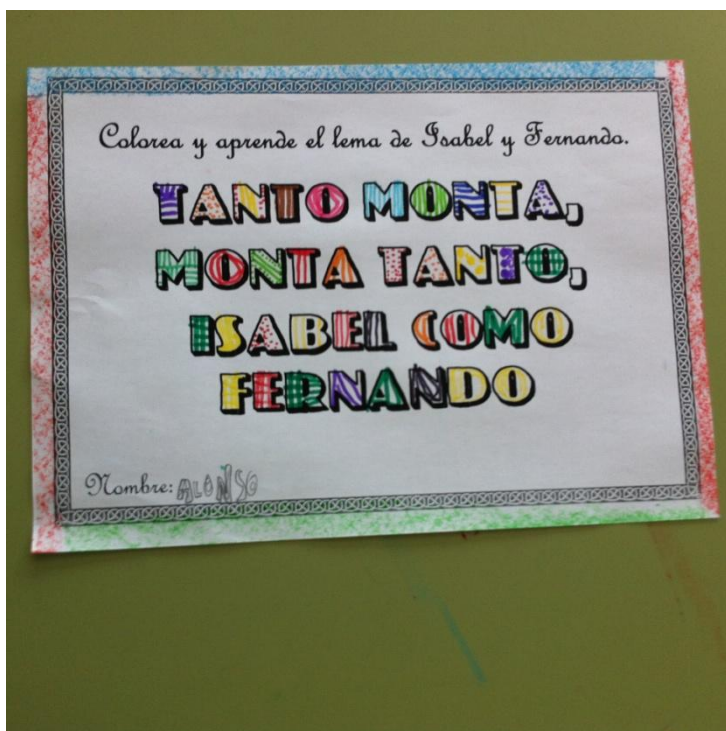 Colorea y aprende el lema de Isabel y Fernando.
TANTO MONTA,
MONTA TANTO,
ISABEL COMO
FERNANDO
Nombre: ALONSO